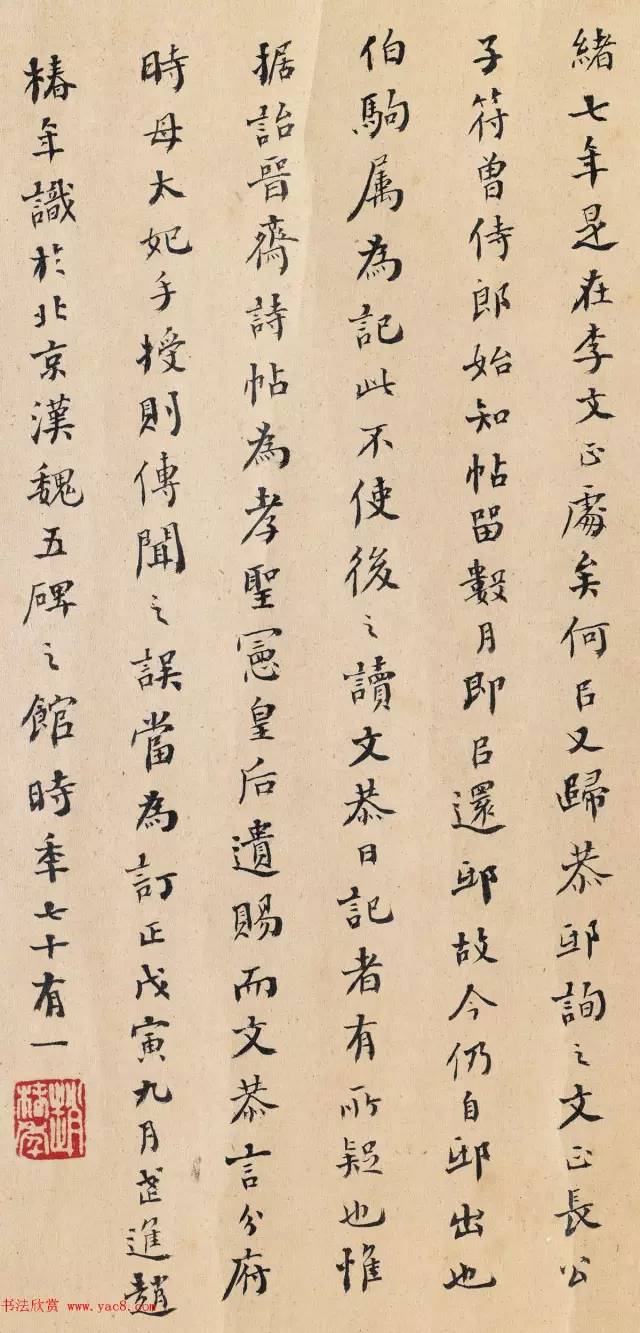 緒七年是在李文正處矣何㠯又歸恭邸詢之文正長公
子符曾侍郎始知帖留數月即㠯還邸故今仍自邸出也
伯駒属為記此不使後之讀文恭日記者有所疑也惟
据詒晉齋詩帖為孝聖憲皇后遺賜而文恭言分府
時母太妃手授則傳聞之誤當為訂正戊寅九月武進趙
椿年識於北京漢魏五碑之館時年七十有一
趙椿年
书法欣赏 www.yac8.com